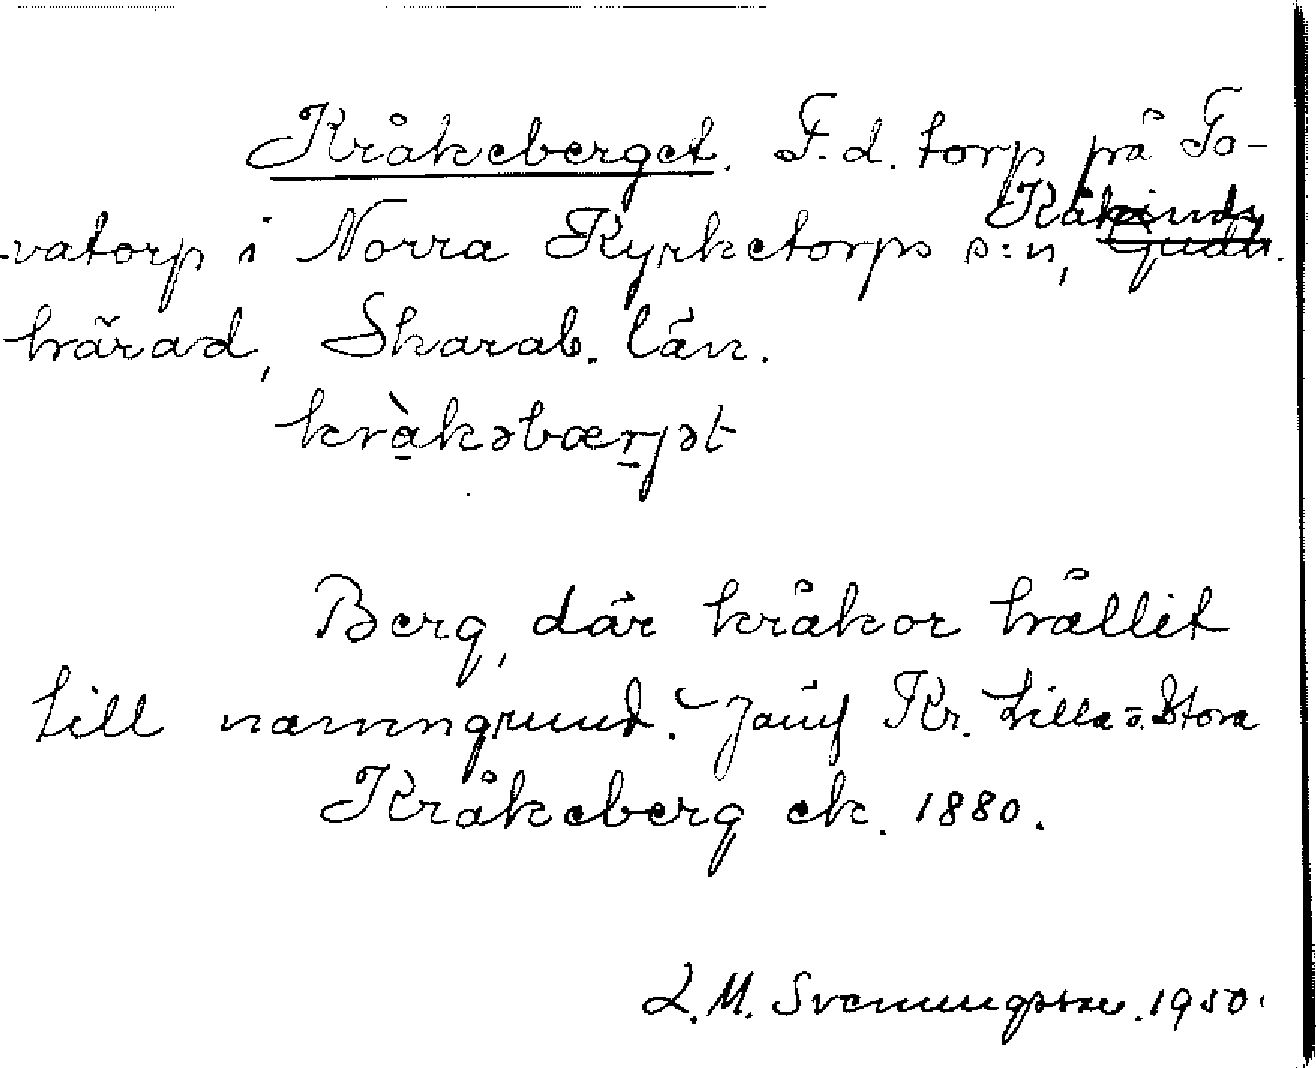 Kråkeberget. F.d. torp på To-
vatorp i Norra Kyrketorps s:n, Kåkinds
härad, Skarab. län.
kràkəbærjət
Berg, där kråkor hållit
till namngrund. Jämf Kr. Lilla o. Stora
Kråkeberg ek. 1880.
L. M. Svenungsson. 1950.